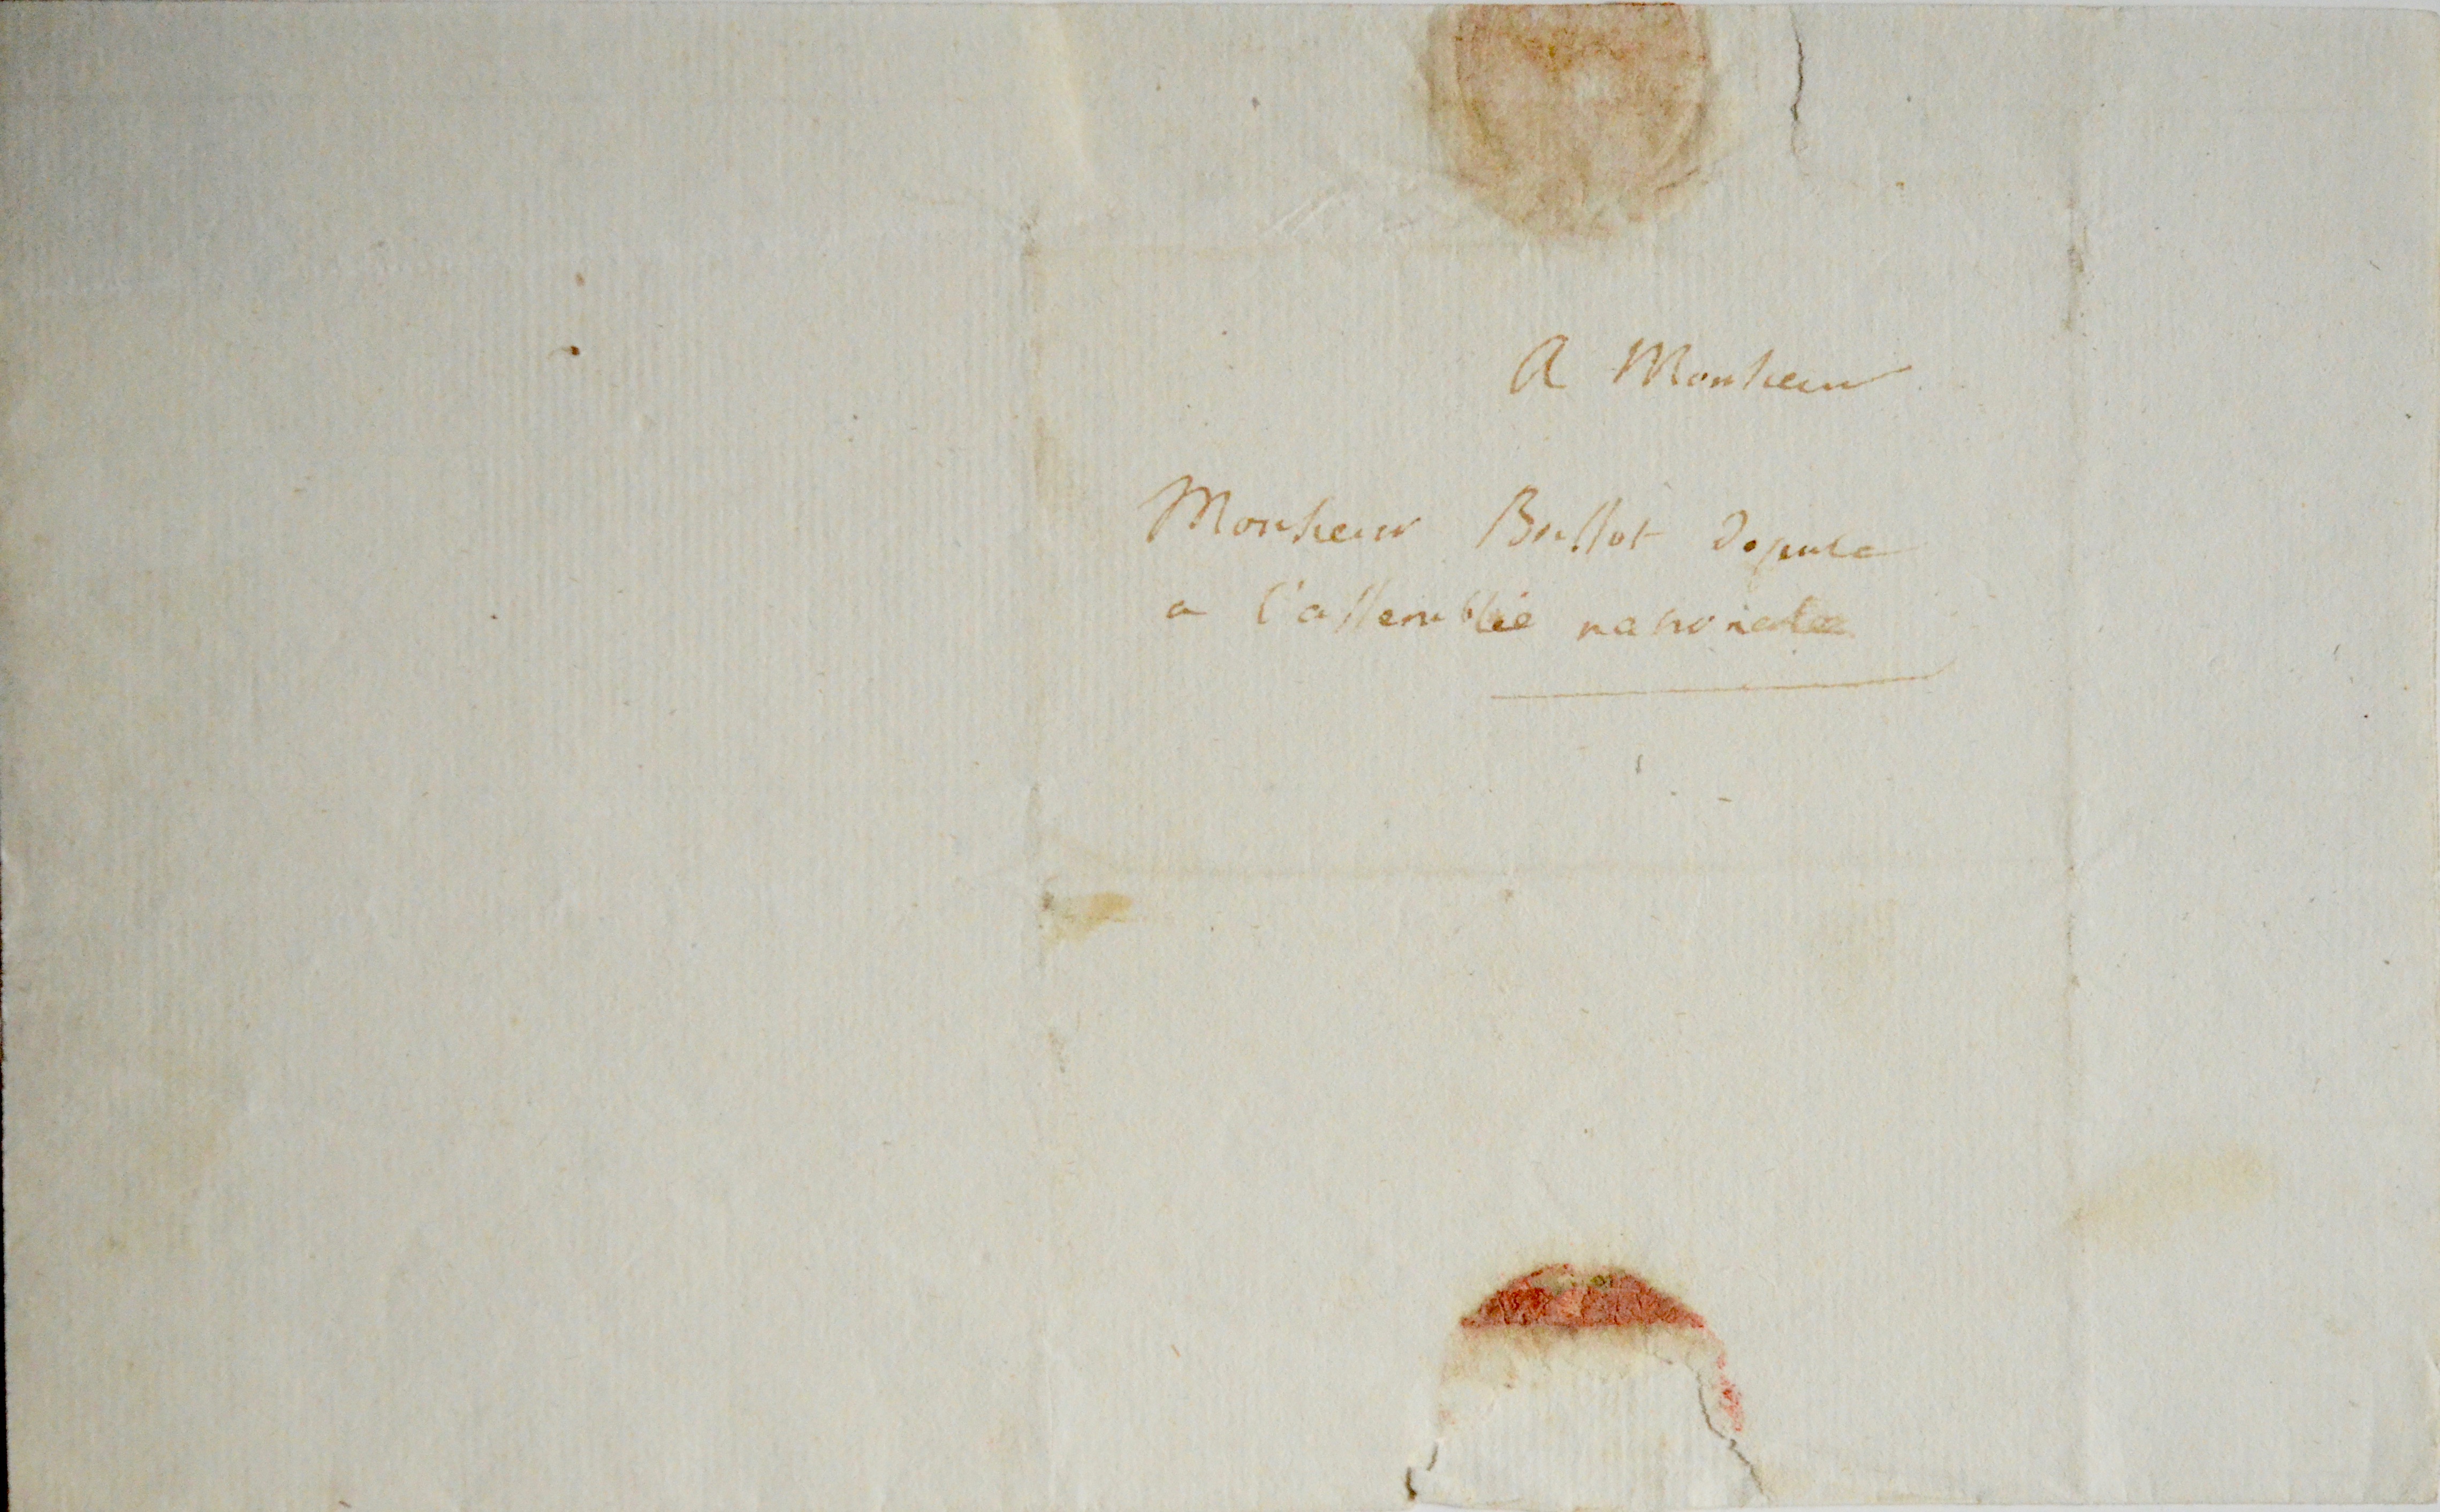 A Monsieur
Monsieur Brissot Depute
a l'assemblée nationale